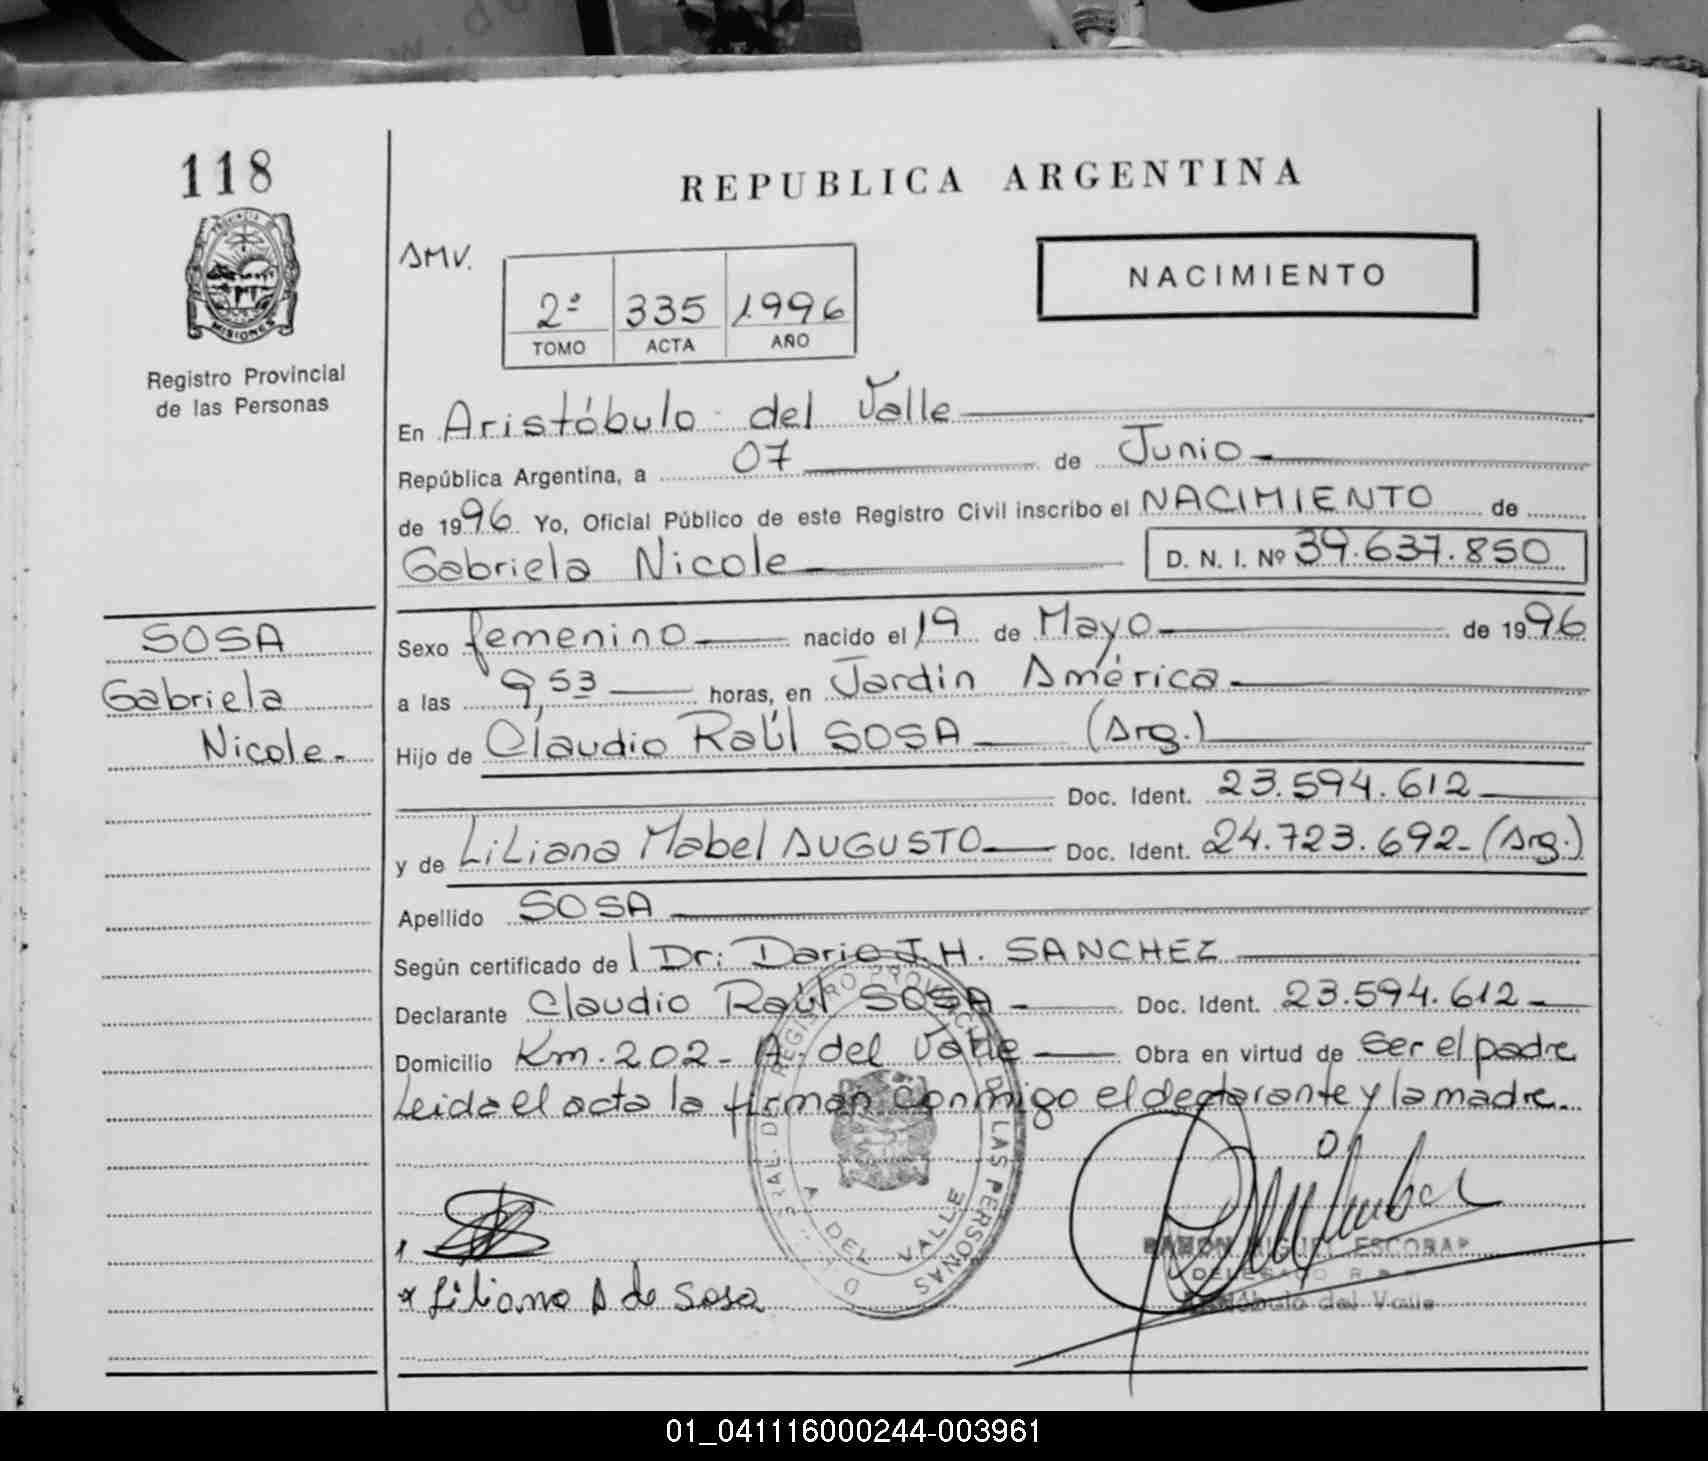 118
REPUBLICA ARGENTINA
PROVINCIA
MISIONES
Registro Provincial
de las Personas
AMV.
2º 335 1996
TOMO ACTA AÑO
NACIMIENTO
En Aristóbulo del Valle
República Argentina, a 07 de Junio
de 1996. Yo, Oficial Público de este Registro Civil inscribo el NACIMIENTO de
Gabriela Nicole D. N. I. Nº 39.637.850
SOSA
Gabriela
Nicole.-
Sexo femenino nacido el 19 de Mayo de 1996
a las 9,53 horas, en Jardín América
Hijo de Claudio Raúl SOSA (Arg.)
Doc. Ident. 23.594.612
y de Liliana Mabel AUGUSTO Doc. Ident. 24.723.692- (Arg.)
Apellido SOSA
Según certificado de l Dr: Dario J. H. SANCHEZ
Declarante Claudio Raúl SOSA Doc. Ident. 23.594.612
Domicilio Km. 202- A. del Valle Obra en virtud de Ser el padre
Leida el acta la firman conmigo el declarante y la madre.
REGISTRO PROVINCIAL DE LAS PERSONAS
A DEL VALLE
Liliana A de Sosa
RAMON MIGUEL ESCOBAR
DELEGADO
Aristóbulo del Valle
01_041116000244-003961